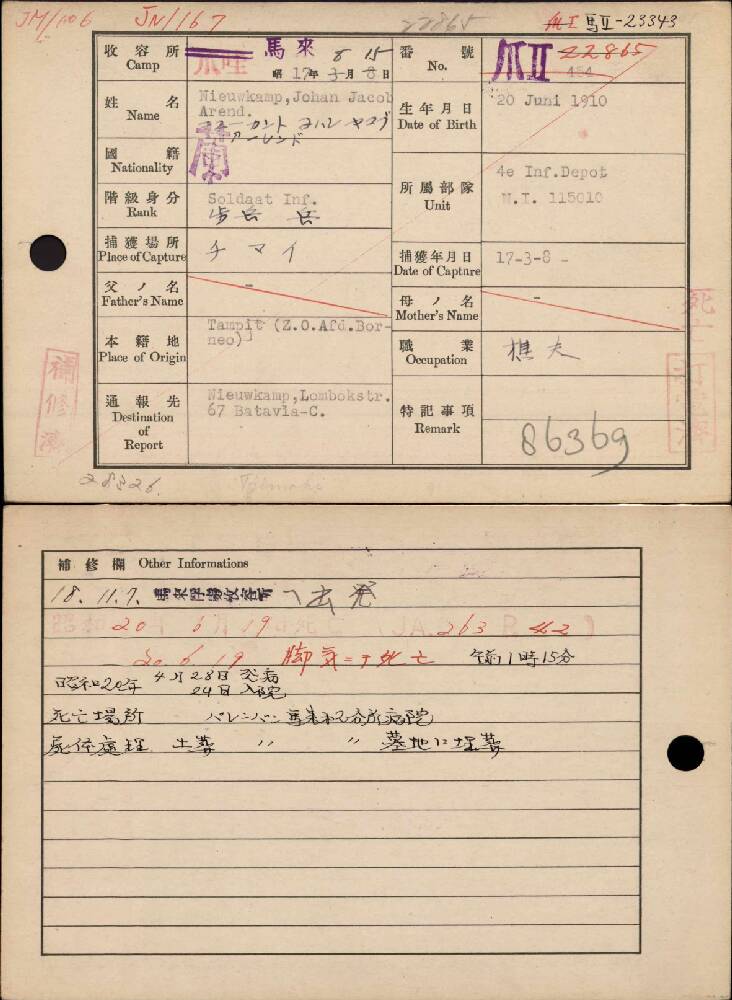 JM/606 JN/167 22865 爪I 馬II-23343
收容所 Camp 爪哇 馬來 昭17年 8月15日
番號 No. 爪II 22865 484
姓名 Name Nieuwkamp,Johan Jacob Arend.
ニューカント ヨハン ヤコブ アーレンド
生年月日 Date of Birth 20 Juni 1910
國籍 Nationality 蘭
階級身分 Rank Soldaat Inf.
所屬部隊 Unit 4e Inf.Depot N.I. 115010
捕獲場所 Place of Capture チマイ
捕獲年月日 Date of Capture 17-3-8 -
父ノ名 Father's Name -
母ノ名 Mother's Name -
本籍地 Place of Origin Tampit (Z.O.Afd.Borneo)
職業 Occupation 樵夫
通報先 Destination of Report Nieuwkamp,Lombokstr. 67 Batavia-C.
特記事項 Remark 86369
補修濟
死亡
訂正濟
28826.
補修欄 Other Informations
18.11.7. 馬來俘虜收容所ヘ出発
昭和20年6月19日 JA.263 R 462
20.6.19 脚気ニテ死亡 午前1時15分
昭和20年 4月23日 発病
24日 入院
死亡場所 パレンバン 分所病院
死体處理 土葬 〃 〃 墓地ニ埋葬